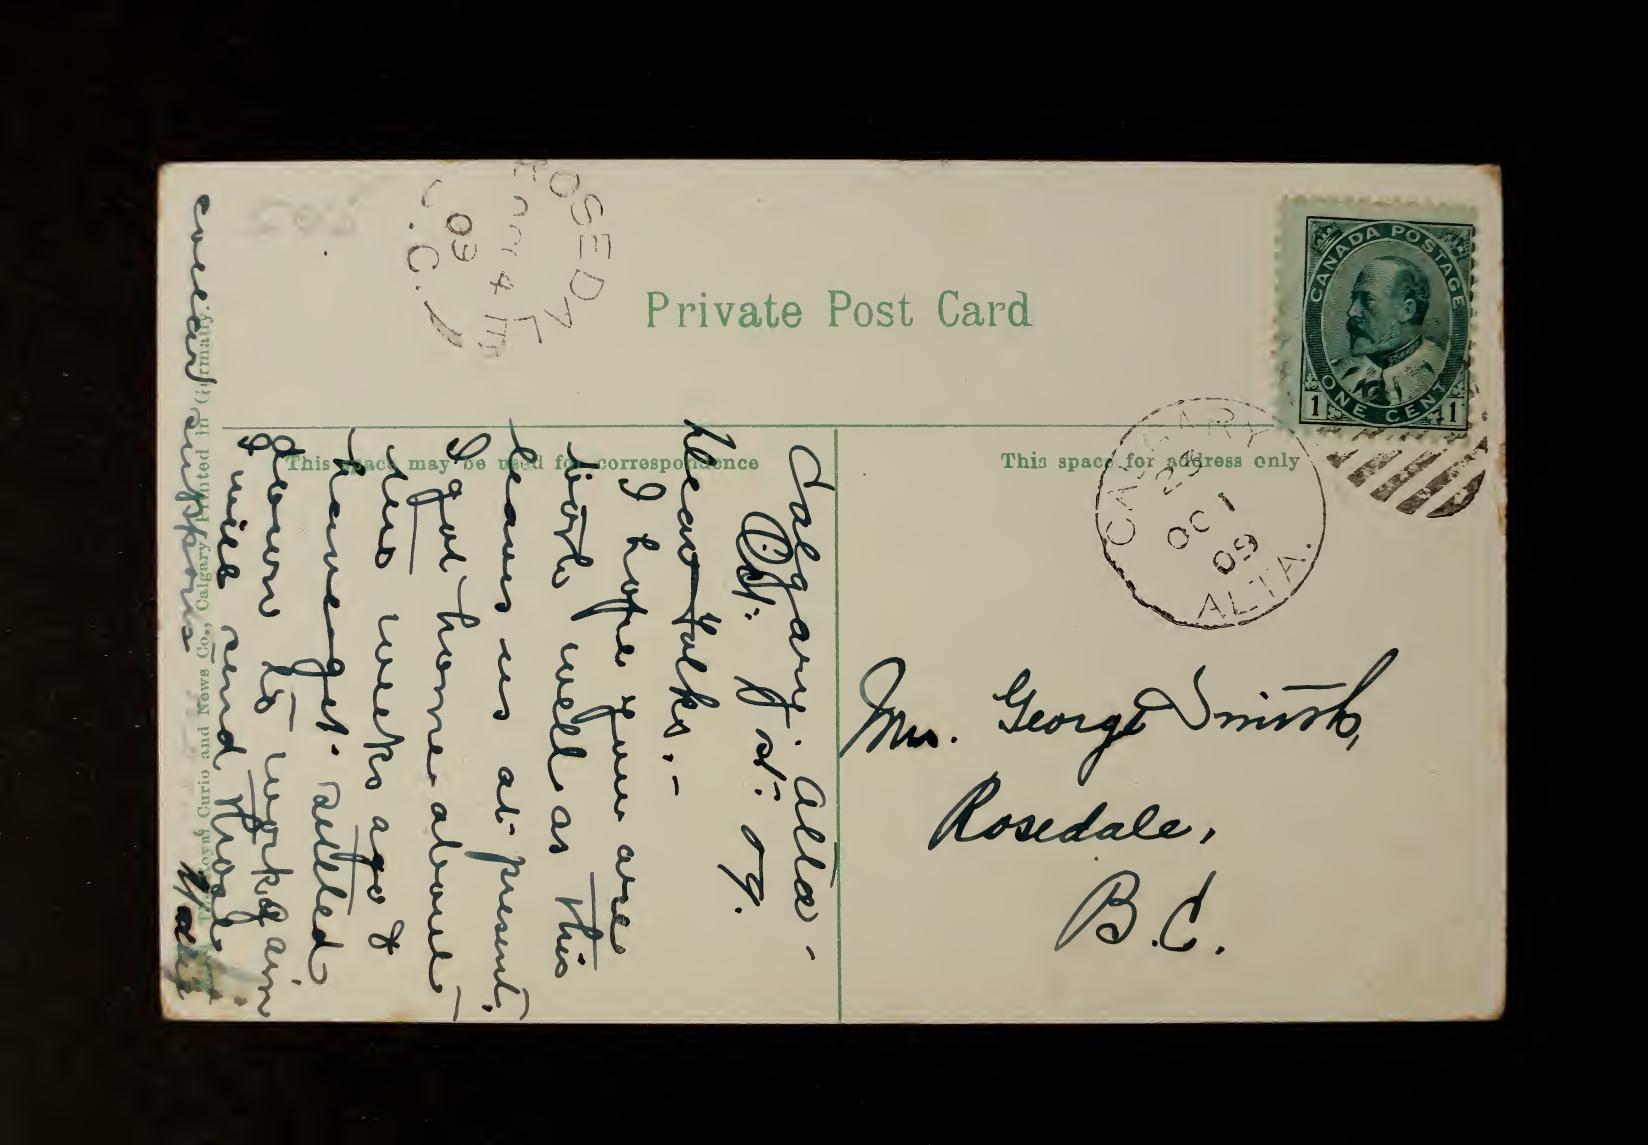 Private Post Card
CANADA POSTAGE
ONE CENT
1 1
ROSEDALE
4
09
B.C.
CALGARY
23
OC 1
09
ALTA.
This space may be used for correspondence
This space for address only
Calgary. Alta -
Oct. 1st. 09.
Dear folks: -
I hope you are
both well as this
leaves us at present.
I got home about
two weeks ago &
have got settled
down to work again
I will send those
Mrs. George Smith,
Rosedale,
B.C.
The Royal Curio and News Co., Calgary. Printed in Germany.